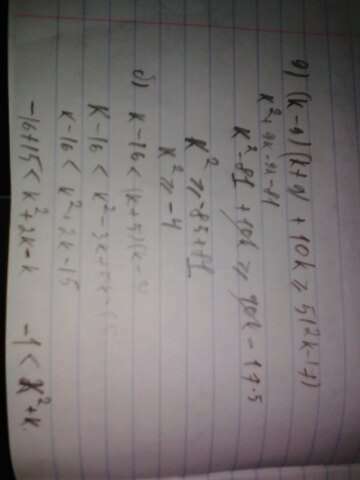 a) (k-9)(k+9) + 10k ≥ 5(2k-17)
k²+9k-9k-81
k²-81 + 10k ≥ 10k - 17·5
k² ≥ -85+81
k² ≥ -4
б) k-16 < (k+5)(k-3)
k-16 < k²-3k+5k-15
k-16 < k²+2k-15
-16+15 < k²+2k-k -1 < k²+k